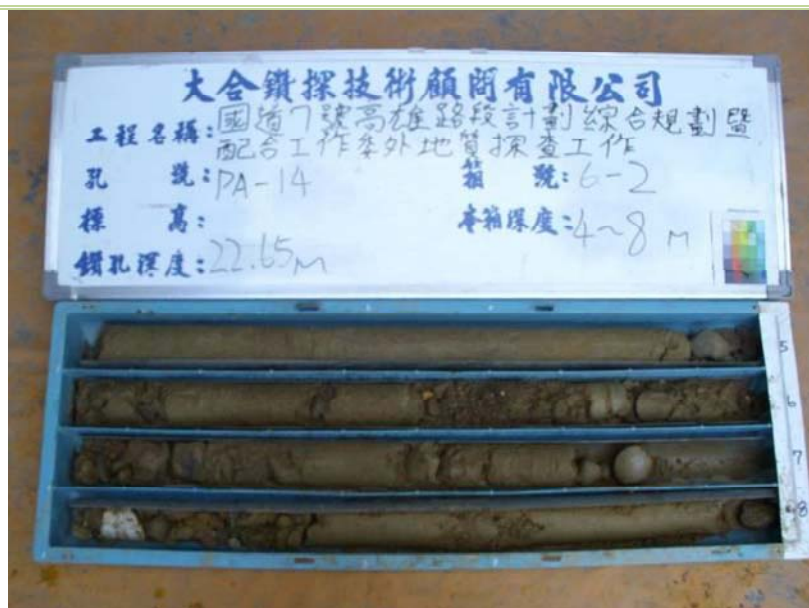 大合鑽探技術顧問有限公司
工程名稱:國道7號高雄路段計劃綜合規劃暨
配合工作委外地質探查工作
孔 號:PA-14 箱 號:6-2
標 高: 本箱深度:4~8 M
鑽孔深度:22.65M
5
6
7
8